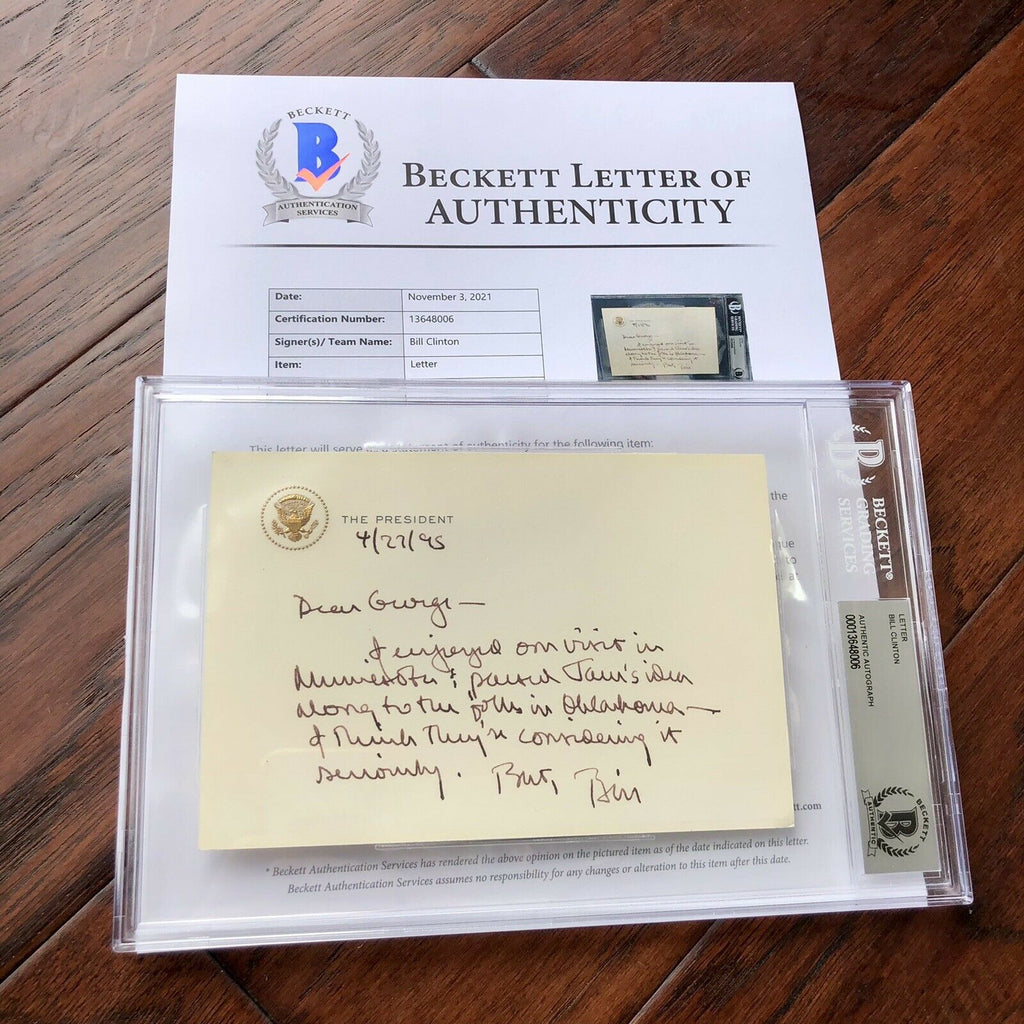 BECKETT
B
AUTHENTICATION
SERVICES
BECKETT LETTER OF
AUTHENTICITY
Date: November 3, 2021
Certification Number: 13648006
Signer(s)/ Team Name: Bill Clinton
Item: Letter
This letter will serve as a statement of authenticity for the following item:
the
to
THE PRESIDENT
4/27/95
Dear George —
I enjoyed our visit in
Minnesota & passed Jane's idea
along to the folks in Oklahoma —
I think they're considering it
seriously. Best, Bill
tt.com
* Beckett Authentication Services has rendered the above opinion on the pictured item as of the date indicated on this letter.
Beckett Authentication Services assumes no responsibility for any changes or alteration to this item after this date.
B
BECKETT®
GRADING
SERVICES
LETTER
BILL CLINTON
AUTHENTIC AUTOGRAPH
00013648006
BECKETT
B
AUTHENTIC